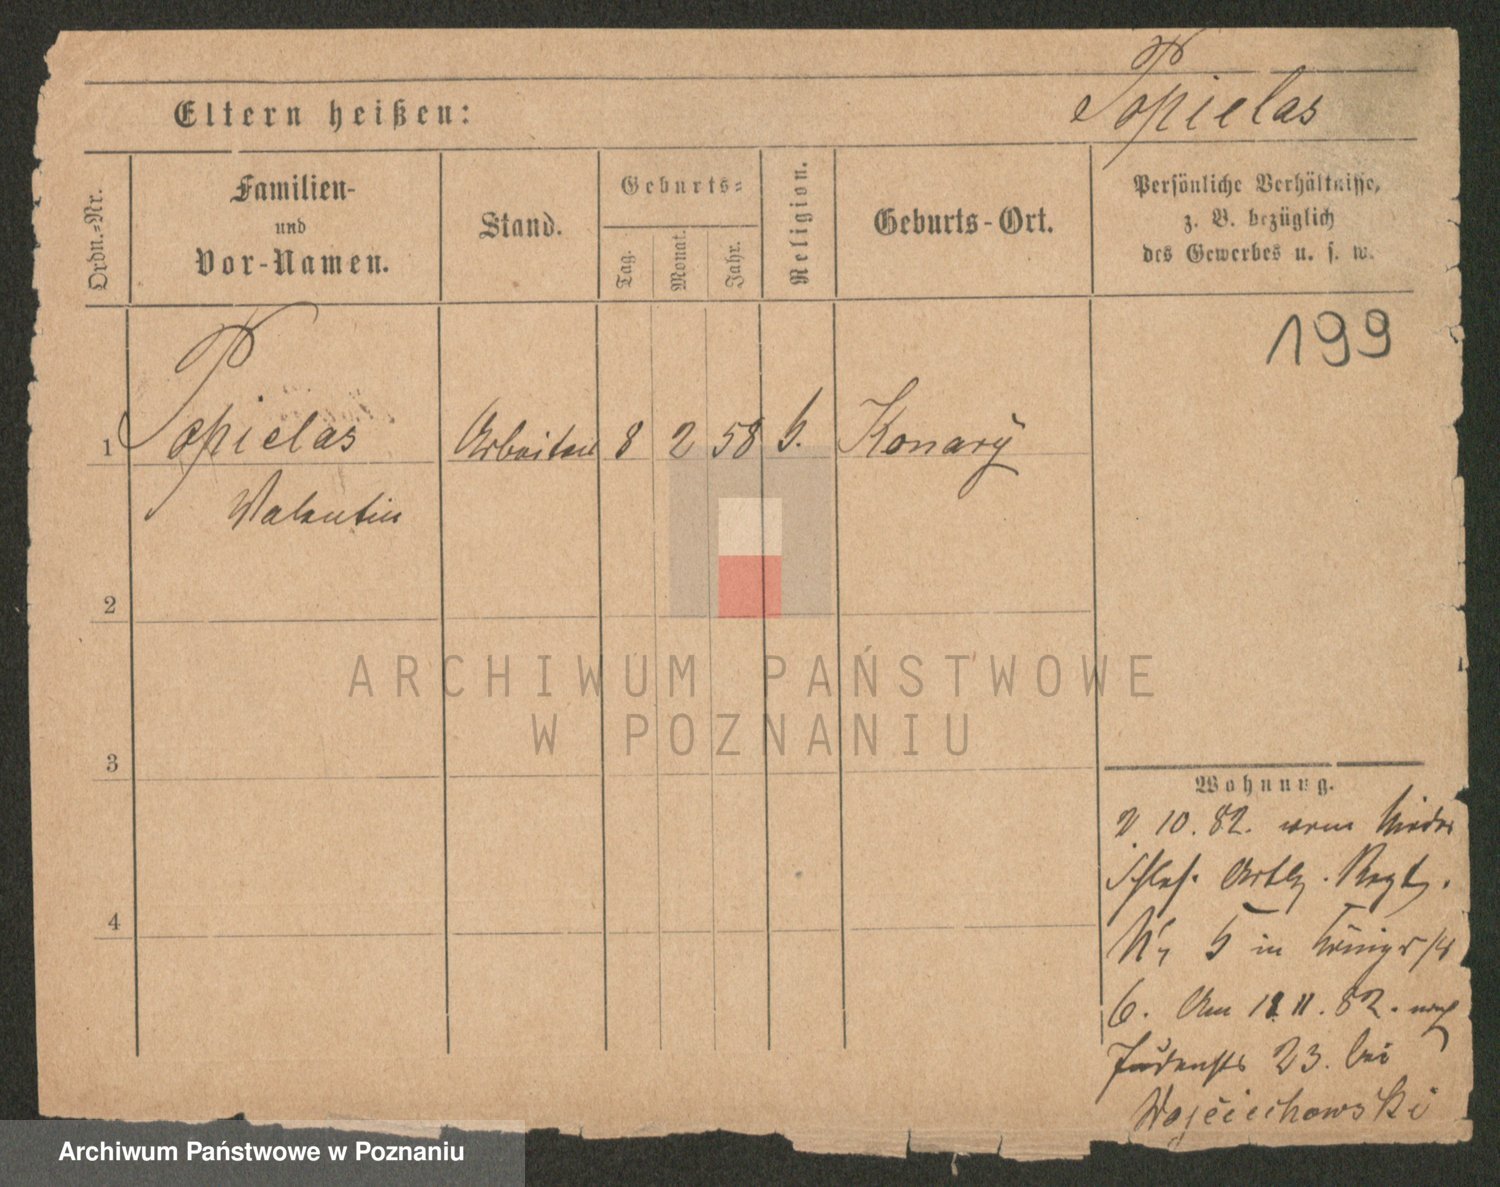 Popielas
Eltern heißen:
Ordn.-Nr.
Familien-
und
Vor-Namen.
Stand.
Geburts-
Tag.
Monat.
Jahr.
Religion.
Geburts-Ort.
Persönliche Verhältnisse,
z. B. bezüglich
des Gewerbes u. s. w.
199
1 Popielas Arbeiter 8 2 58 k. Konary
Valentin
2
3
4
Wohnung.
2 10. 82. vom Nieder
Schles. Artly. Regt.
Nr 5 in Königstr
6. Am 11. 82. nach
Judenstr 23. bei
Wojciechowski
ARCHIWUM PAŃSTWOWE
W POZNANIU
Archiwum Państwowe w Poznaniu